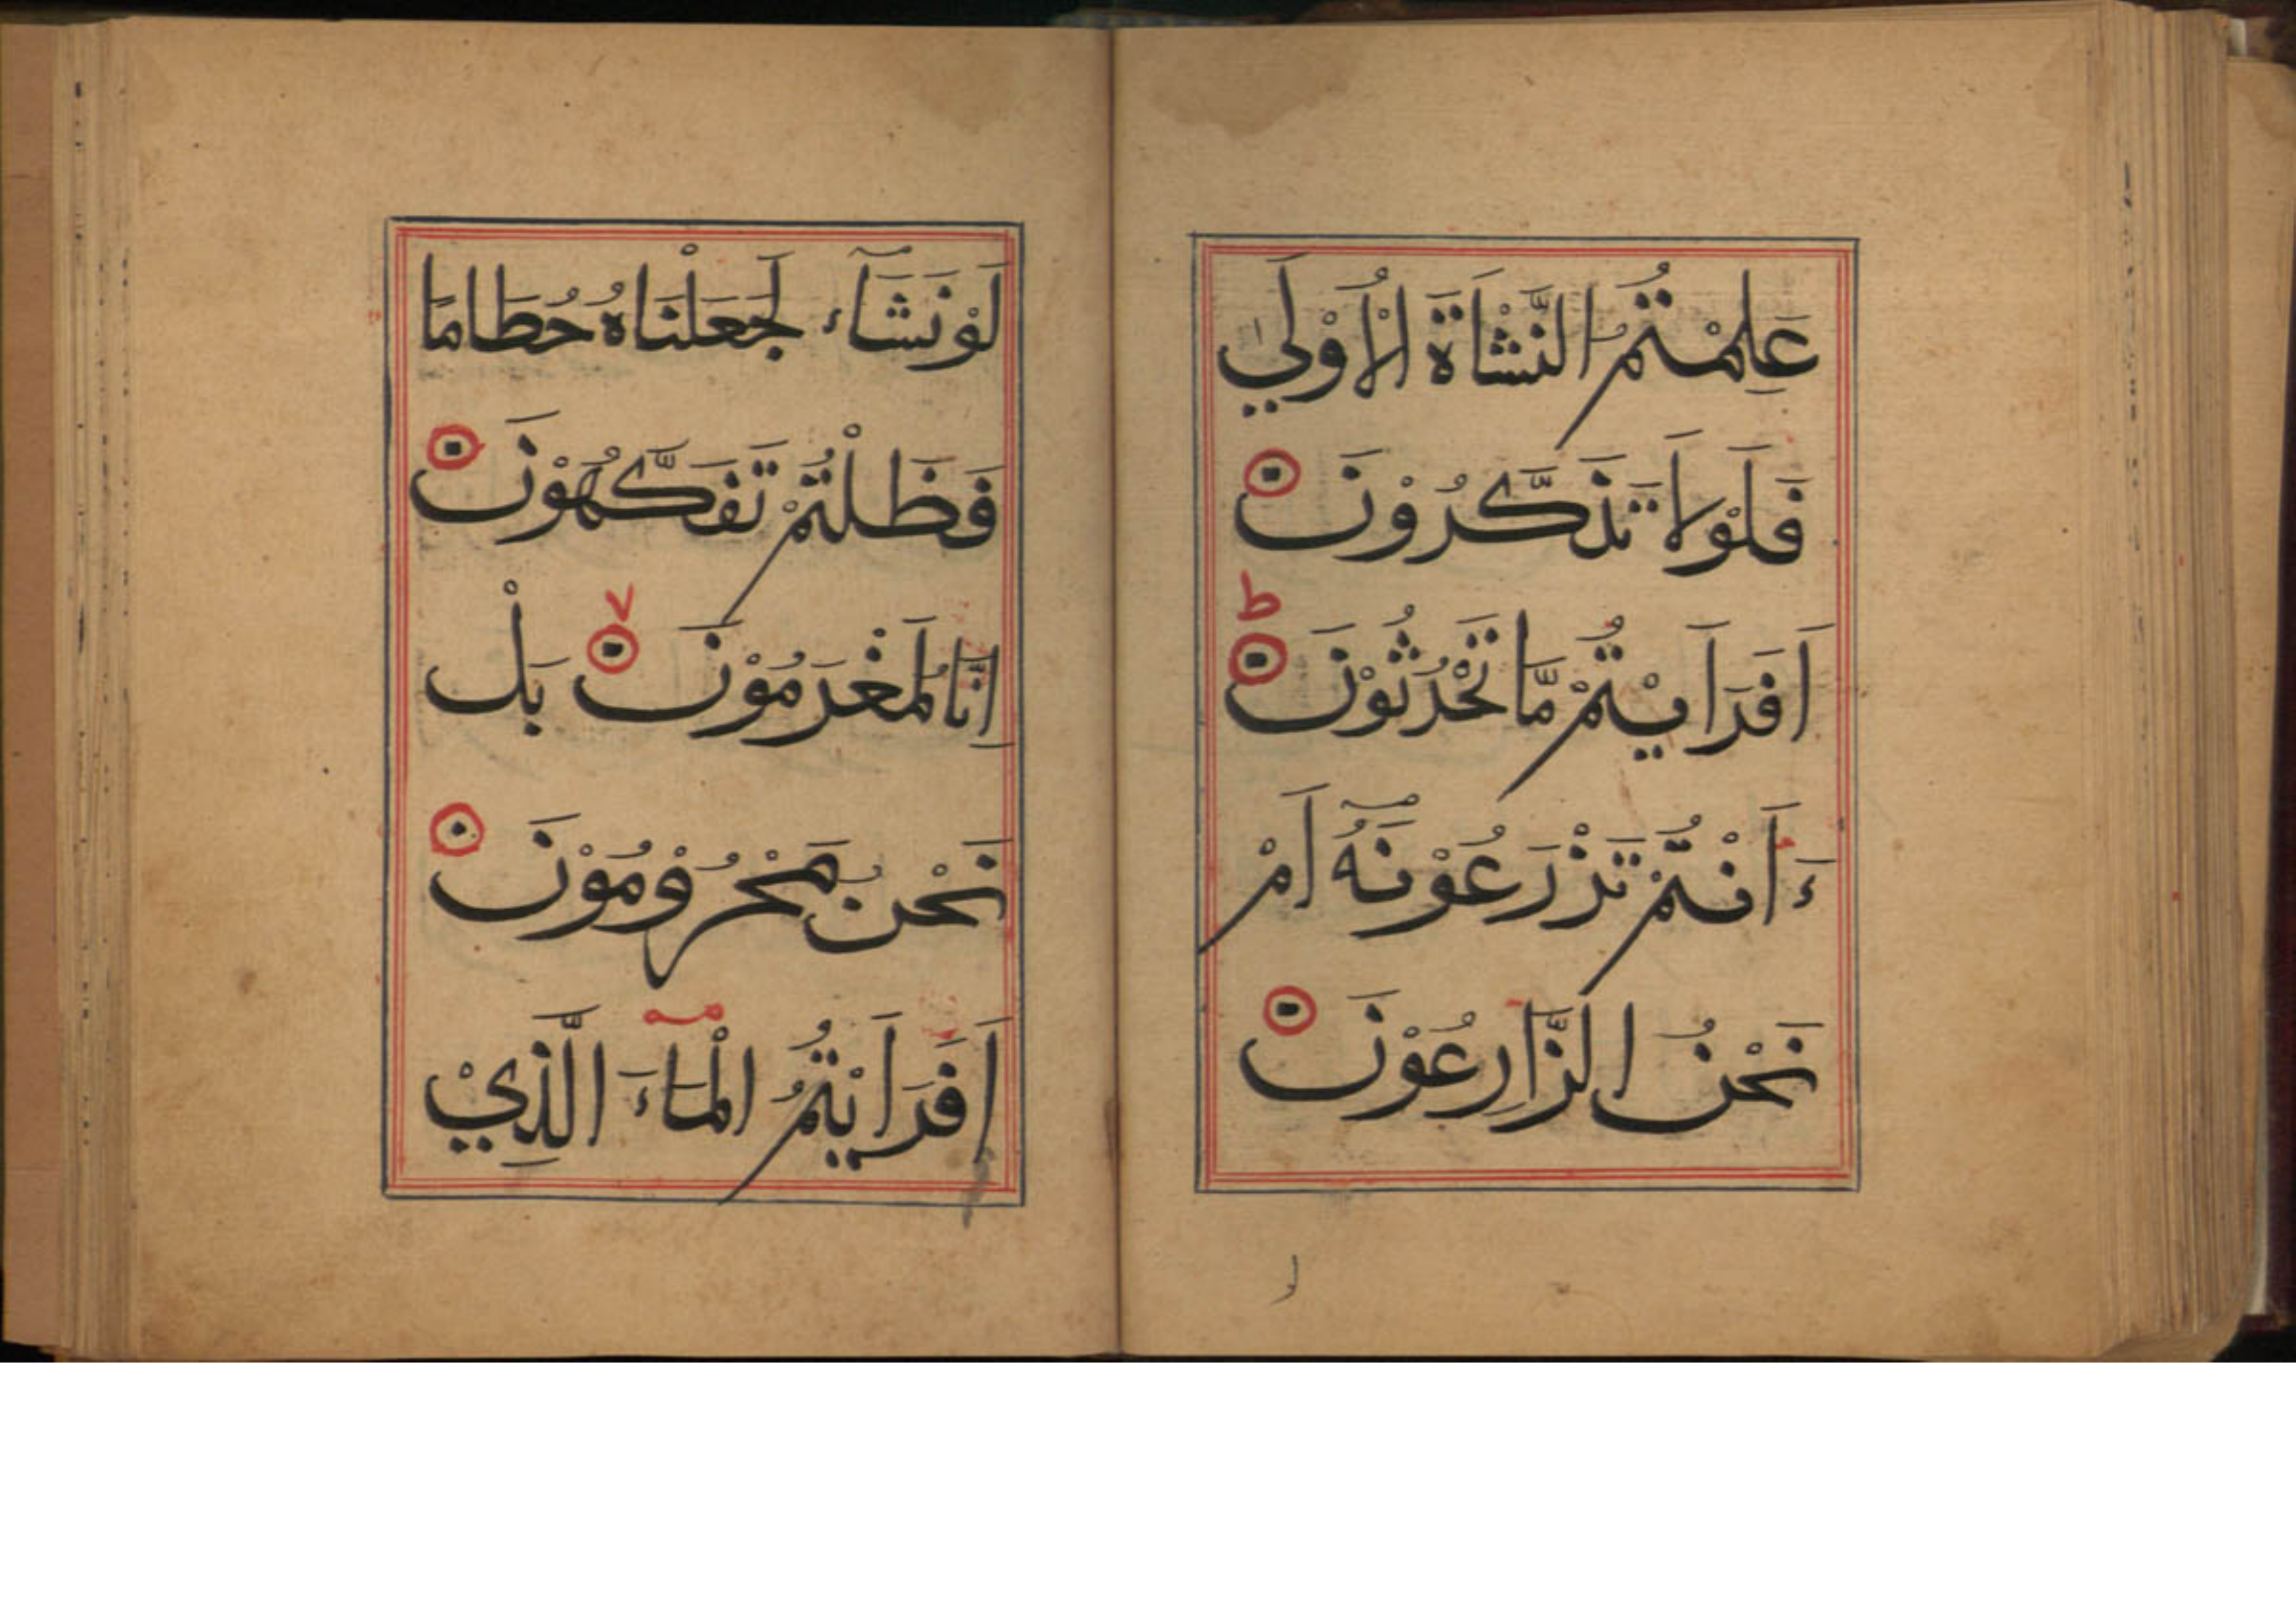 عَلِمْتُمُ النَّشْاَةَ الْاُوْلٰي
فَلَوْلَا تَذَكَّرُوْنَ
ط
اَفَرَاَيْتُمْ مَّا تَحْرُثُوْنَ
ءَاَنْتُمْ تَزْرَعُوْنَهُ اَمْ
نَحْنُ الزَّارِعُوْنَ
لو
لَوْنَشَآءُ لَجَعَلْنَاهُ حُطَامًا
فَظَلْتُمْ تَفَكَّهُوْنَ
اِنَّا لَمُغْرَمُوْنَ بَلْ
نَحْنُ مَحْرُوْمُوْنَ
اَفَرَاَيْتُمُ الْمَآءَ الَّذِيْ